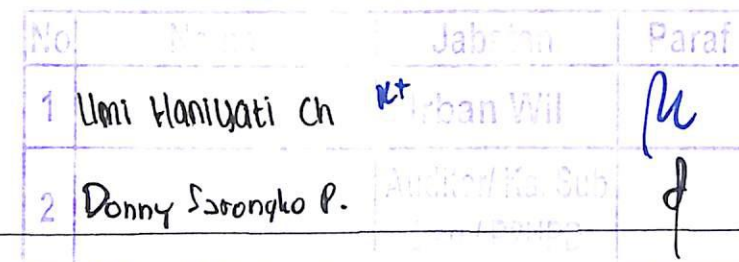 No Nama Jabatan Paraf
1 Umi Haniyati Ch Kt Irban Wil
2 Donny P. Auditor/ Ka. Sub